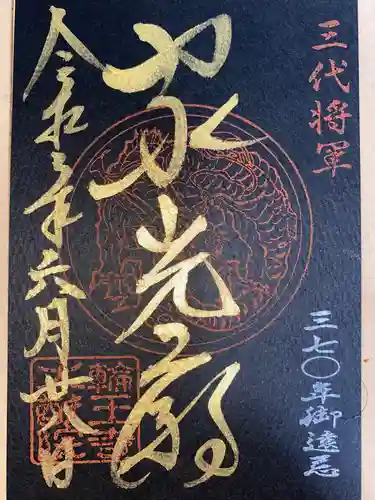 三代将軍
三七〇年御遠忌
家光廟
令和三年六月廿八日
輪王寺